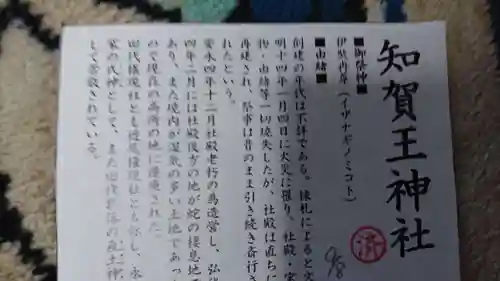 知賀王神社
■御祭神■
伊弉冉尊(イザナギノミコト)
■由緒■
創建の年代は不詳である。棟札によると文
明十四年一月四日に火災に罹り、社殿、宝
物・由緒等一切焼失したが、社殿は直ちに
再建され、祭事は昔のまま引き続き斎行さ
れたという。
安永四年十二月社殿老朽の為造営し、弘化
四年二月には社殿後方の地が蛇の棲息地で
あり、また境内が湿気の多い土地であった
ので現在の高所の地に遷座された。
田代権現社とも
家の氏神として、また田代
して崇敬されている。
済
9/8